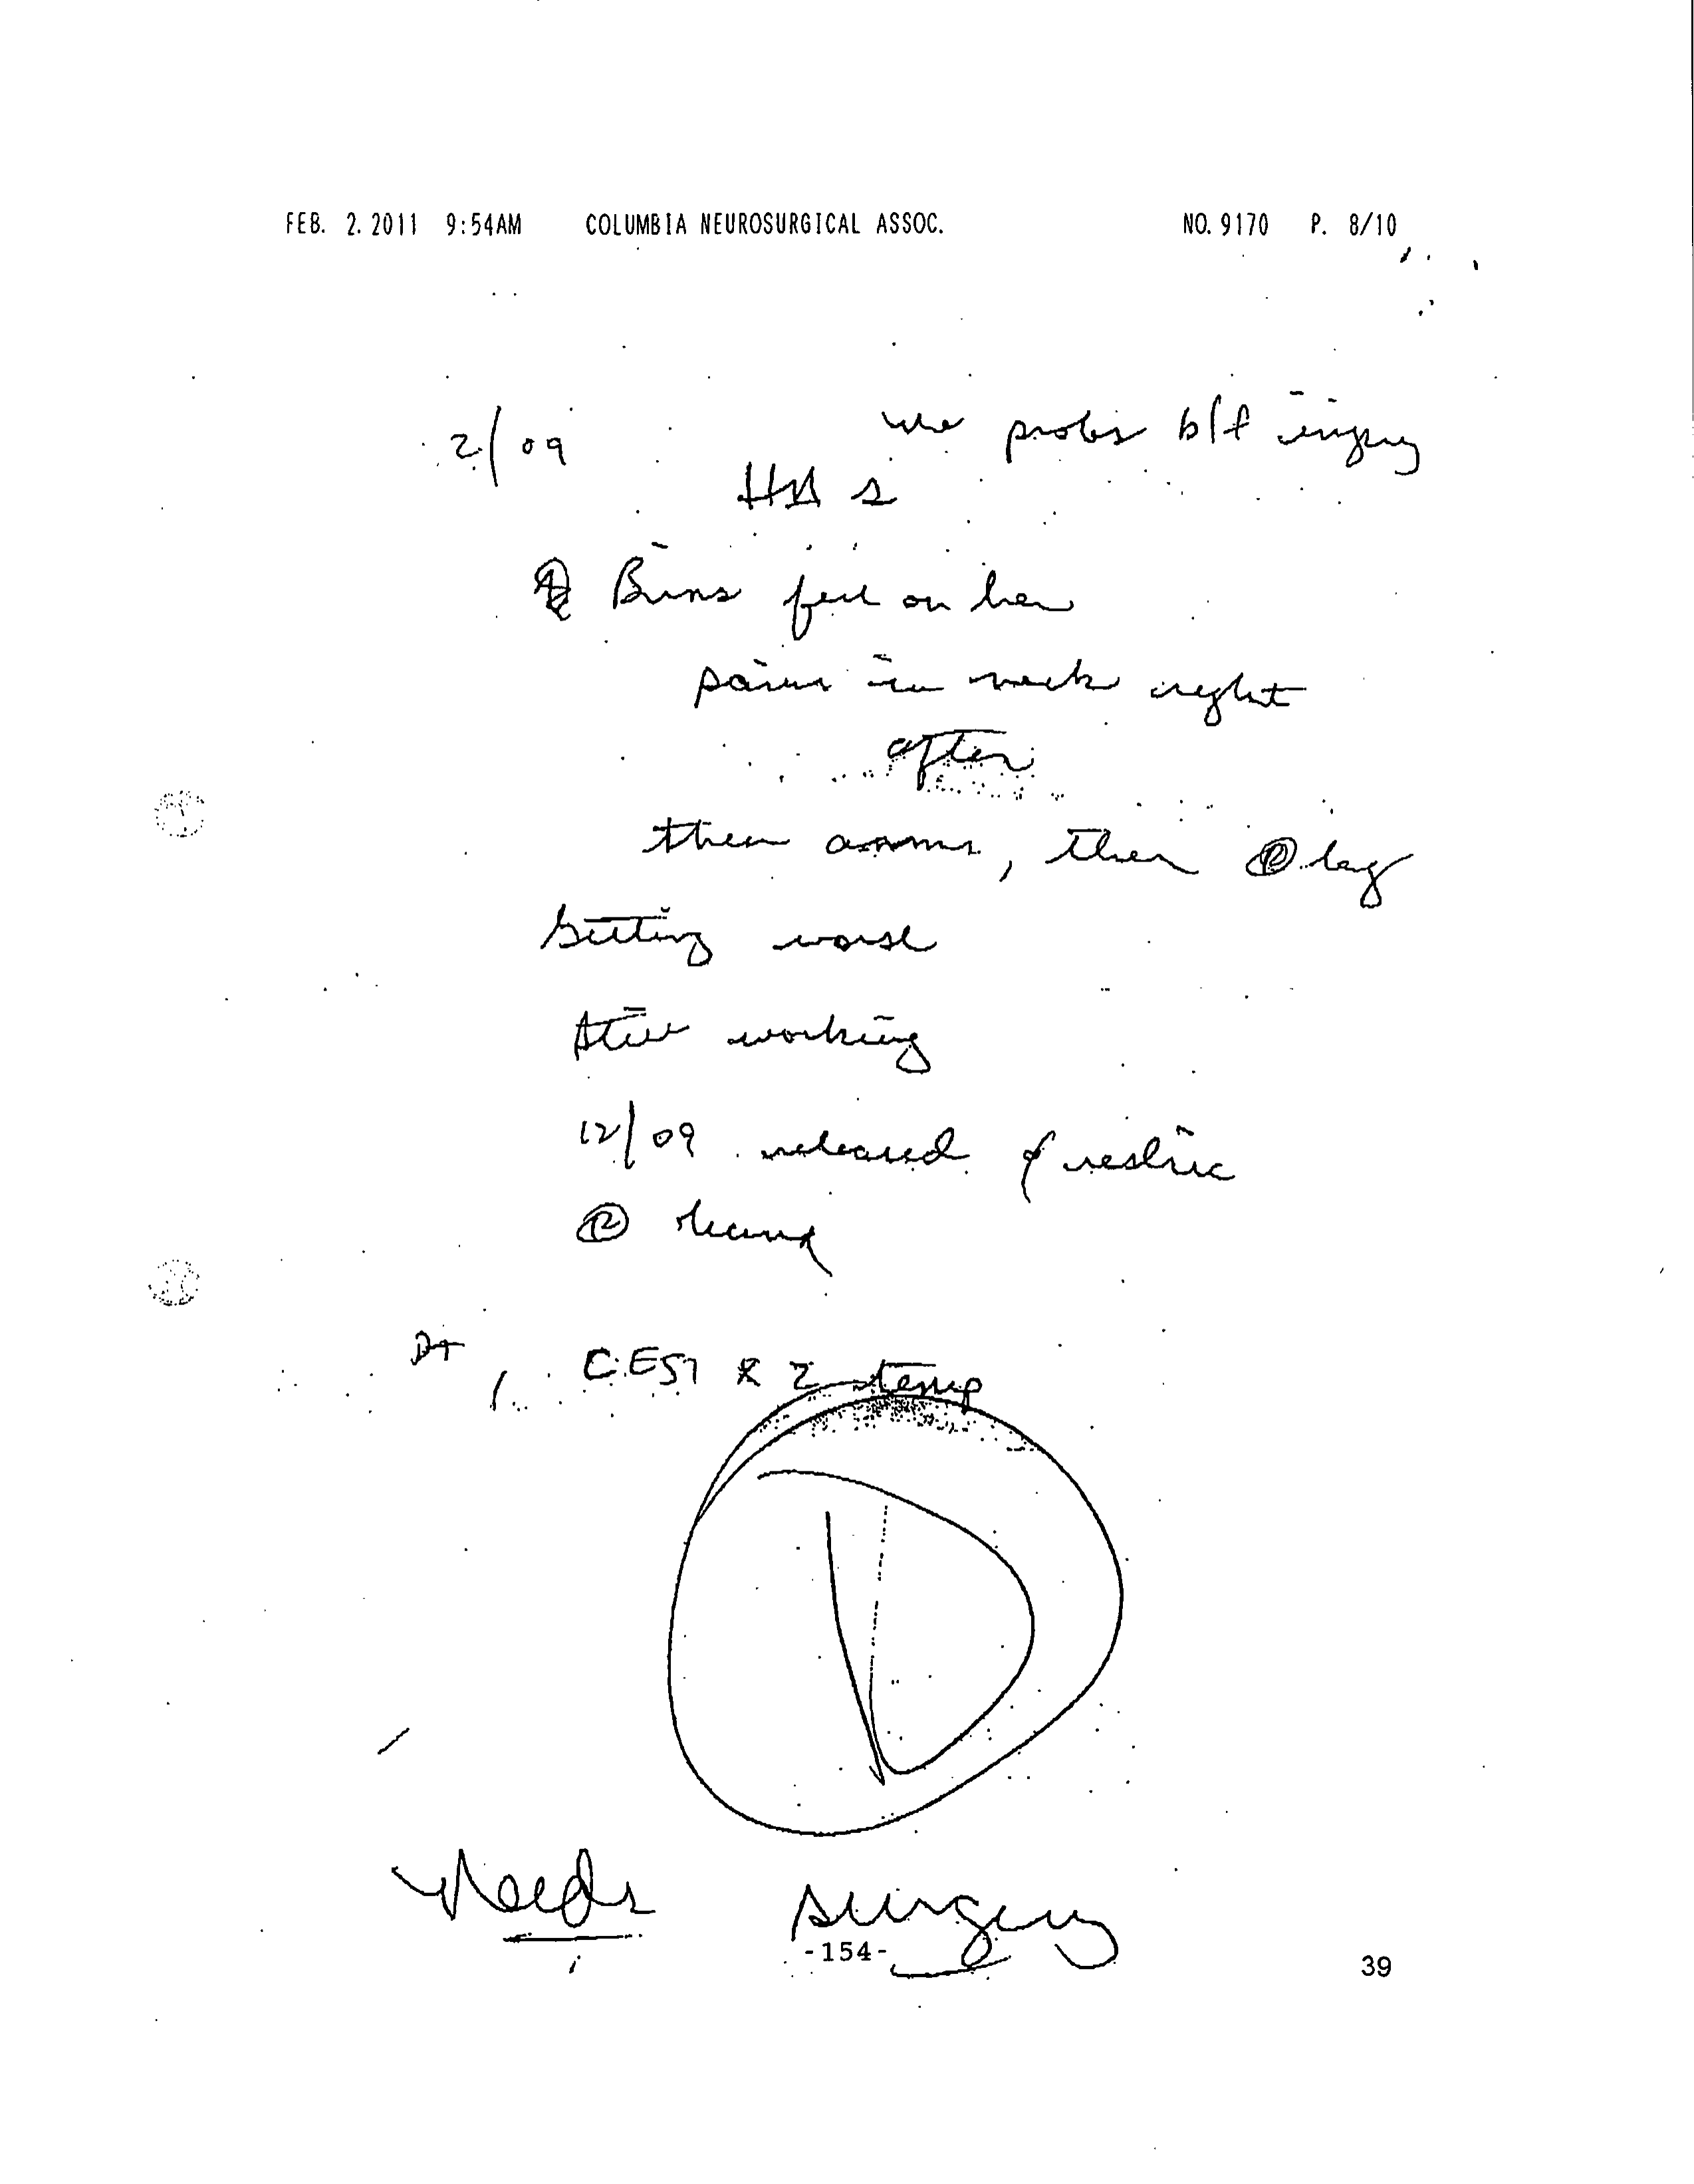 FEB. 2. 2011 9:54AM COLUMBIA NEUROSURGICAL ASSOC. NO. 9170 P. 8/10
2/09 probs b/f injury
HA s
Bins fell on her
pain in neck right
after
then arms, then Ⓡ leg
Getting worse
Still working
12/09 released restric
Ⓡ hand
PT
CESI x 2 temp
Needs surgery
-154-
39